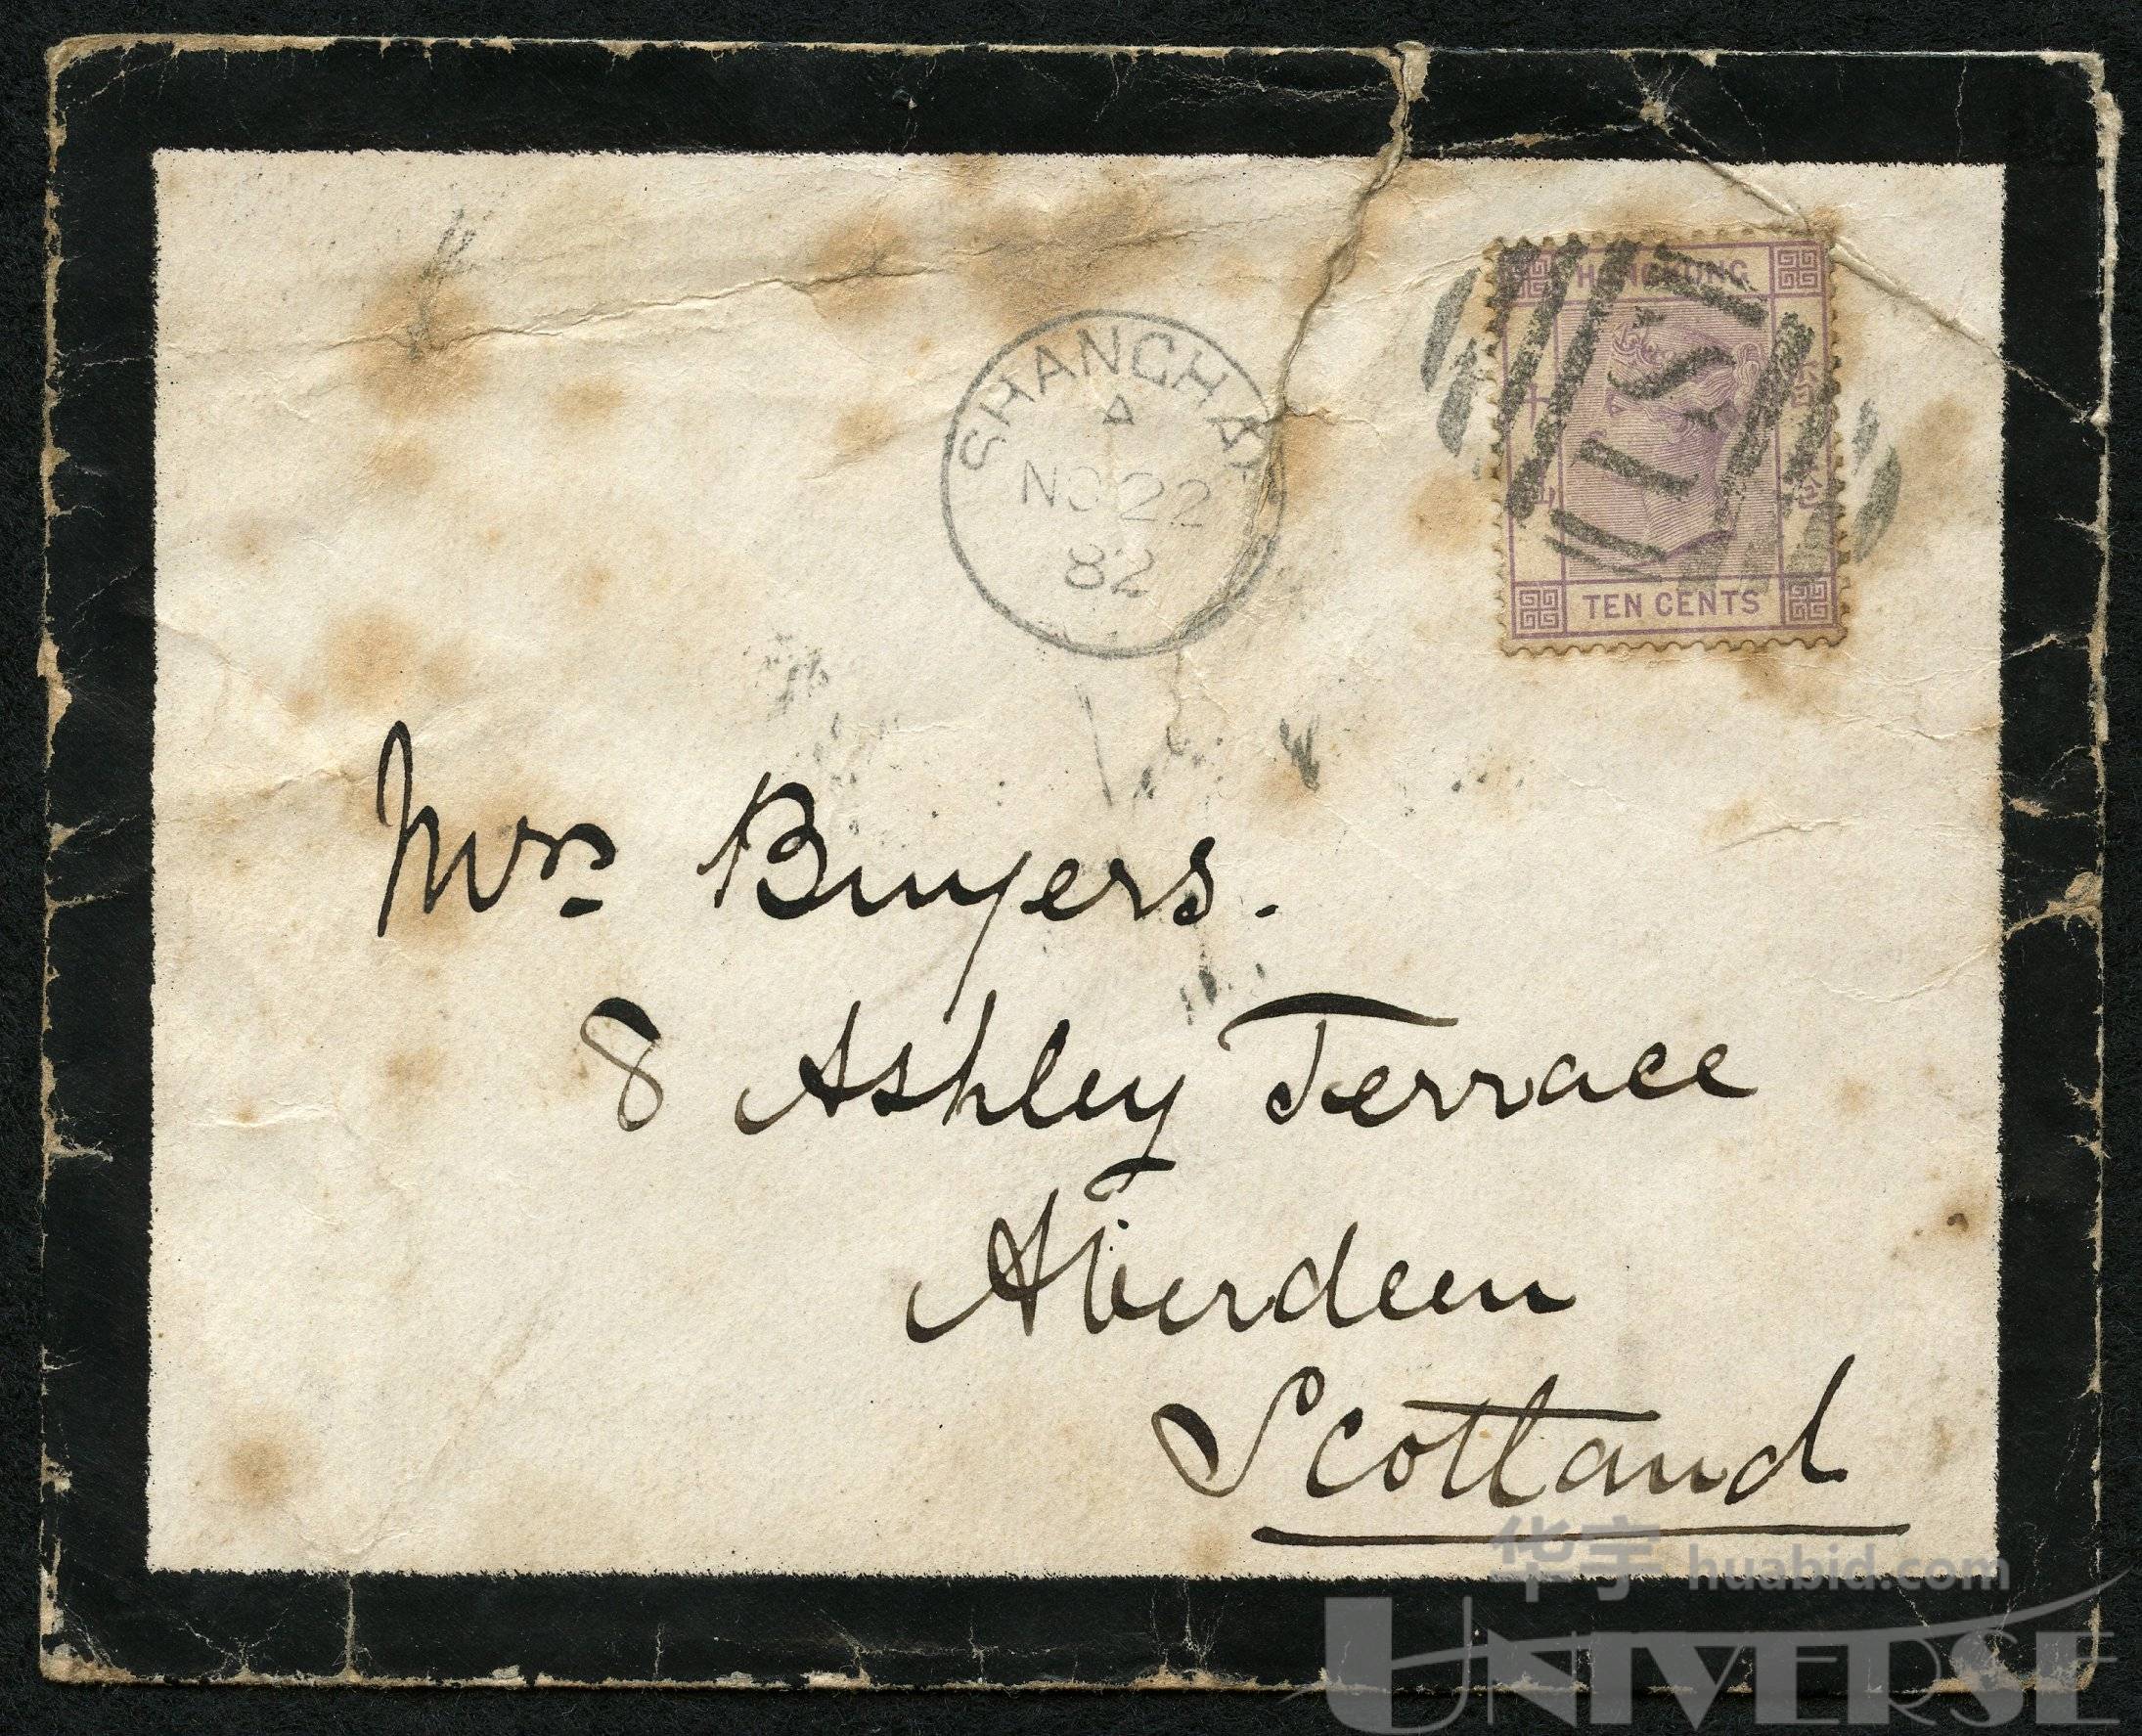 HONG KONG
S1
TEN CENTS
SHANGHAI
A
NO 22
82
Mrs Buyers.
8 Ashley Terrace
Aberdeen
Scotland
华宇 huabid.com
UNIVERSE